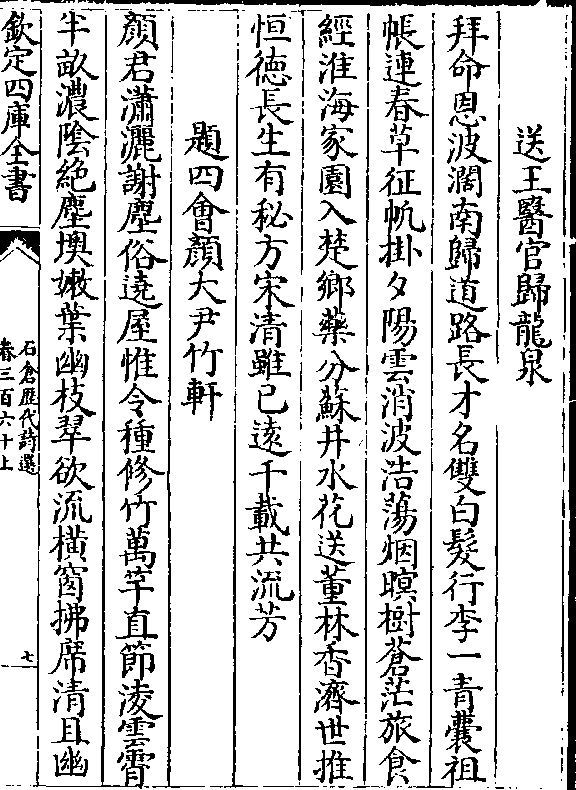 送王醫官歸龍泉
拜命恩波濶南歸道路長才名雙白髮行李一青囊祖
帳連春草征帆掛夕陽雲消波浩蕩烟暝樹蒼茫旅食
經淮海家園入楚鄉藥分蘇井水花送董林香濟世推
恒徳長生有秘方宋清雖已逺千載共流芳
題四會顔大尹竹軒
顔君瀟灑謝塵俗遶屋惟令種修竹萬竿直節凌雲霄
半畝濃陰絶塵墺嫩葉幽枝翠欲流橫窗拂席清且幽
欽定四庫全書
石倉歴代詩選
卷三百六十上
七